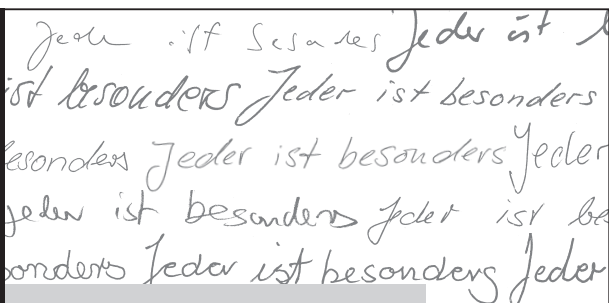 Jeder ist besonders Jeder ist
ist besonders Jeder ist besonders
esonders Jeder ist besonders Jeder
jeder ist besonders Jeder ist be
sonders Jeder ist besonders Jeder